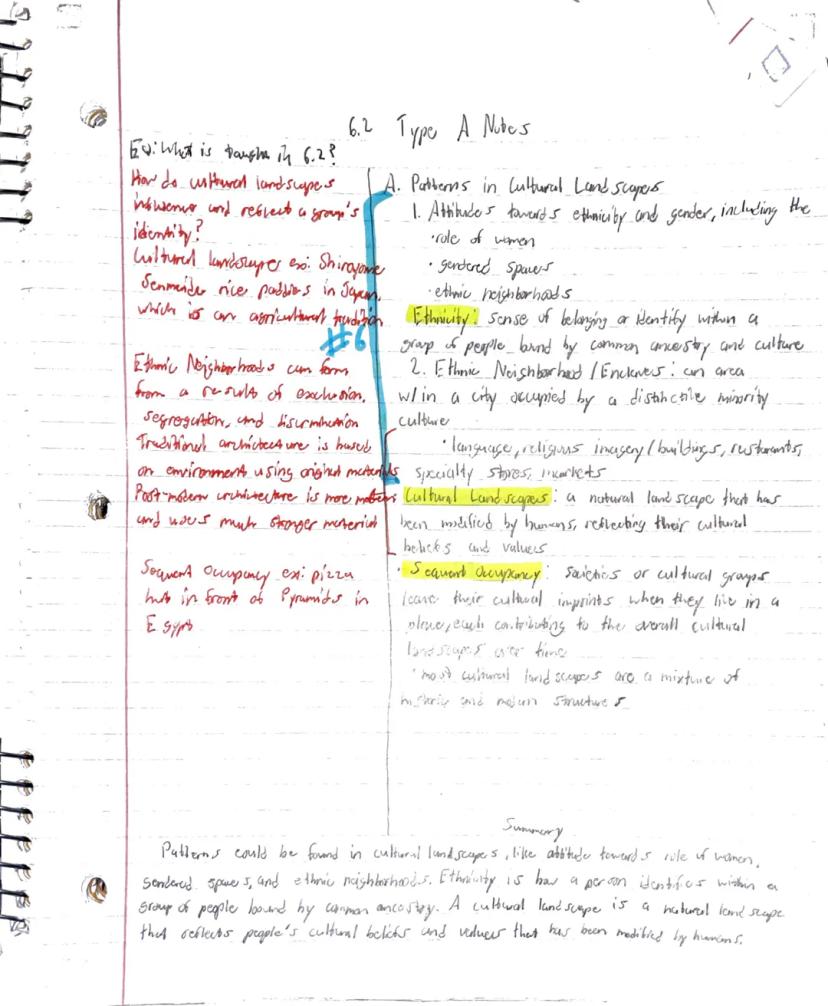 6.2 Type A Notes
EQ: What is taught in 6.2?
How do cultural landscapes
influence and reflect a group's
identity?
Cultural landscapes ex: Shiroyone
Senmaida rice paddies in Japan,
which is an agricultural tradition
#6
Ethnic Neighborhoods can form
from a results of exclusion,
segregation, and discrimination
Traditional architecture is based
on environment using original materials
Post-modern architecture is more modern
and uses much stronger material
Sequent Occupancy ex: pizza
hut in front of Pyramids in
Egypt
A. Patterns in Cultural Landscapes
1. Attitudes towards ethnicity and gender, including the
• role of women
• gendered spaces
• ethnic neighborhoods
Ethnicity: sense of belonging or identity within a
group of people bound by common ancestry and culture
2. Ethnic Neighborhood/Enclaves: an area
w/in a city occupied by a distinctive minority
culture
• language, religious imagery/buildings, restaurants,
specialty stores, markets
Cultural Landscapes: a natural landscape that has
been modified by humans, reflecting their cultural
beliefs and values
• Sequent Occupancy: Societies or cultural groups
leave their cultural imprints when they live in a
place, each contributing to the overall cultural
landscapes over time
• most cultural landscapes are a mixture of
historic and modern structures
Summary
Patterns could be found in cultural landscapes, like attitude towards role of women,
gendered spaces, and ethnic neighborhoods. Ethnicity is how a person identifies within a
group of people bound by common ancestry. A cultural landscape is a natural landscape
that reflects people's cultural beliefs and values that has been modified by humans.